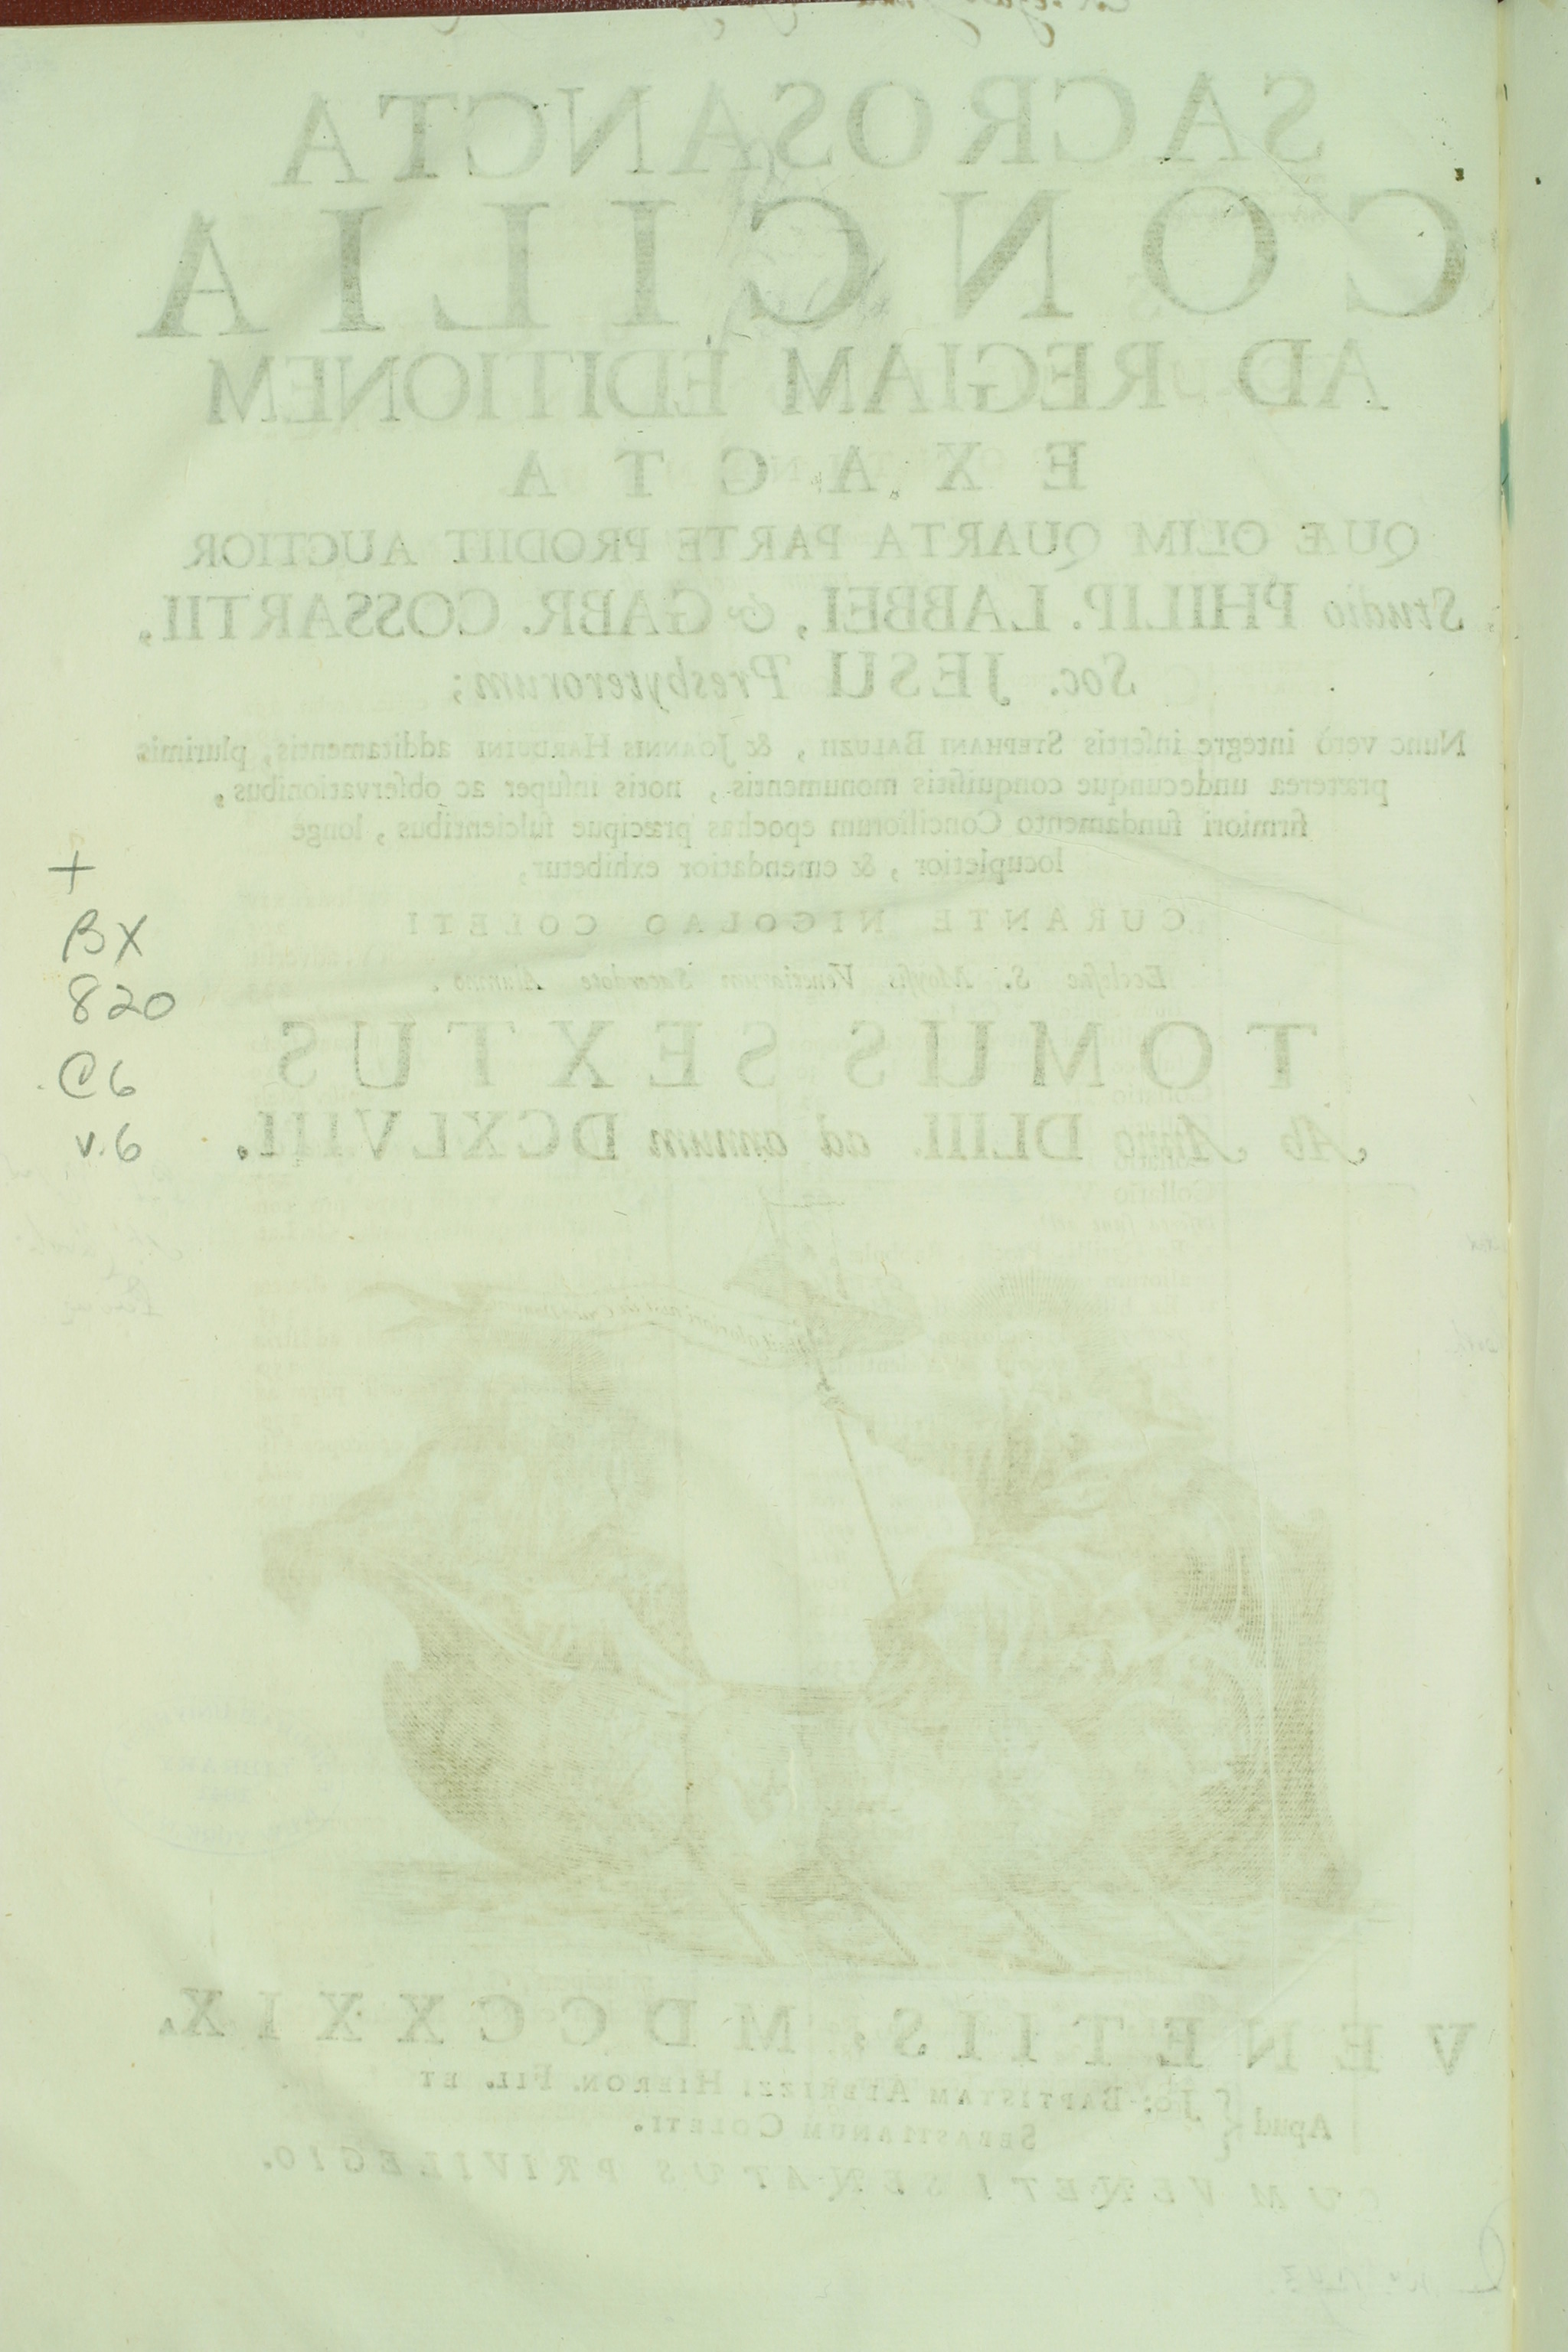 SACROSANCTA
CONCILIA
AD REGIAM EDITIONEM
EXACTA
QUÆ OLIM QUARTA PARTE PRODIIT AUCTIOR
Studio PHILIP. LABBEI, & GABR. COSSARTII,
Soc. JESU Presbyterorum;
Nunc verò integre insertis STEPHANI BALUZII, & JOANNIS HARDUINI additamentis, plurimis
præterea undecunque conquisitis monumentis, notis insuper ac observationibus,
firmiori fundamento Conciliorum epochas præcipue fulcientibus, longe
locupletior, & emendatior exhibetur,
CURANTE NICOLAO COLETI
Ecclesiæ S. Moysis Venetiarum Sacerdote Alumno.
TOMUS SEXTUS
Ab Anno DLIII. ad annum DCXLVIIII.
+
BX
820
C6
v.6
VENETIIS, MDCCXXIX.
Apud { Jo: BAPTISTAM ALBRIZZI HIERON. FIL. ET
SEBASTIANUM COLETI.
CUM VENETI SENATUS PRIVILEGIO.